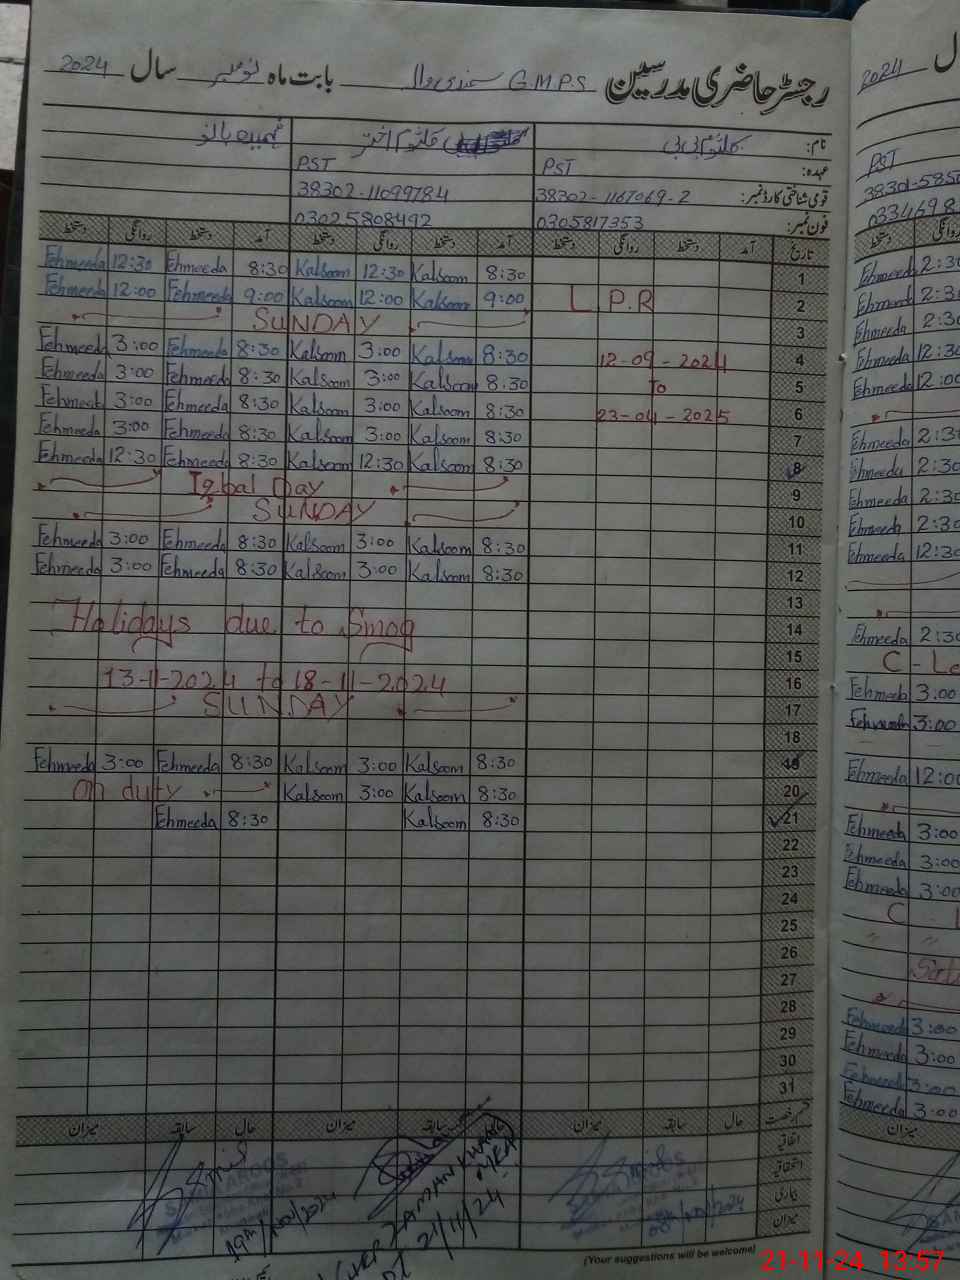 رجسٹر حاضری مدرسین G.M.P.S سندی وال بابت ماہ نومبر سال 2024
نام: کلثوم بی بی کلثوم اختر فہمیدہ بانو
عہدہ: PST PST
قومی شناختی کارڈ نمبر: 38302-1167069-2 38302-11099784
فون نمبر: 0305817353 03025808492
تاریخ آمد دستخط روانگی دستخط آمد دستخط روانگی دستخط آمد دستخط روانگی دستخط
1 8:30 Kalsoom 12:30 Kalsoom 8:30 Fehmeeda 12:30 Fehmeeda
2 L P.R 9:00 Kalsoom 12:00 Kalsoom 9:00 Fehmeeda 12:00 Fehmeeda
3 SUNDAY
4 12-09-2024 8:30 Kalsoom 3:00 Kalsoom 8:30 Fehmeeda 3:00 Fehmeeda
5 To 8:30 Kalsoom 3:00 Kalsoom 8:30 Fehmeeda 3:00 Fehmeeda
6 23-04-2025 8:30 Kalsoom 3:00 Kalsoom 8:30 Fehmeeda 3:00 Fehmeeda
7 8:30 Kalsoom 3:00 Kalsoom 8:30 Fehmeeda 3:00 Fehmeeda
8 8:30 Kalsoom 12:30 Kalsoom 8:30 Fehmeeda 12:30 Fehmeeda
9 Iqbal Day
10 SUNDAY
11 8:30 Kalsoom 3:00 Kalsoom 8:30 Fehmeeda 3:00 Fehmeeda
12 8:30 Kalsoom 3:00 Kalsoom 8:30 Fehmeeda 3:00 Fehmeeda
13
14 Holidays due to Smog
15
16 13-11-2024 to 18-11-2024
17 SUNDAY
18
19 8:30 Kalsoom 3:00 Kalsoom 8:30 Fehmeeda 3:00 Fehmeeda
20 8:30 Kalsoom 3:00 Kalsoom on duty
21 8:30 Kalsoom 8:30 Fehmeeda
22
23
24
25
26
27
28
29
30
31
قسم رخصت حال سابقہ میزان سابقہ میزان حال سابقہ میزان
اتفاقیہ
استحقاقیہ
بیماری
میزان
19th/Nov/2024
21/11/24
(Your suggestions will be welcome)
21-11-24 13:57
سال 2024
PST
2:30
Fehmeeda 2:30
Fehmeeda 2:30
Fehmeeda 12:30
Fehmeeda 12:00
Fehmeeda 2:30
Fehmeeda 2:30
Fehmeeda 2:30
Fehmeeda 2:30
Fehmeeda 12:30
Fehmeeda 2:30
Fehmeeda 3:00
Fehmeeda 3:00
Fehmeeda 12:00
Fehmeeda 3:00
Fehmeeda 3:00
Fehmeeda 3:00
Fehmeeda 3:00
Fehmeeda 3:00
Fehmeeda 3:00
Fehmeeda 3:00
میزان